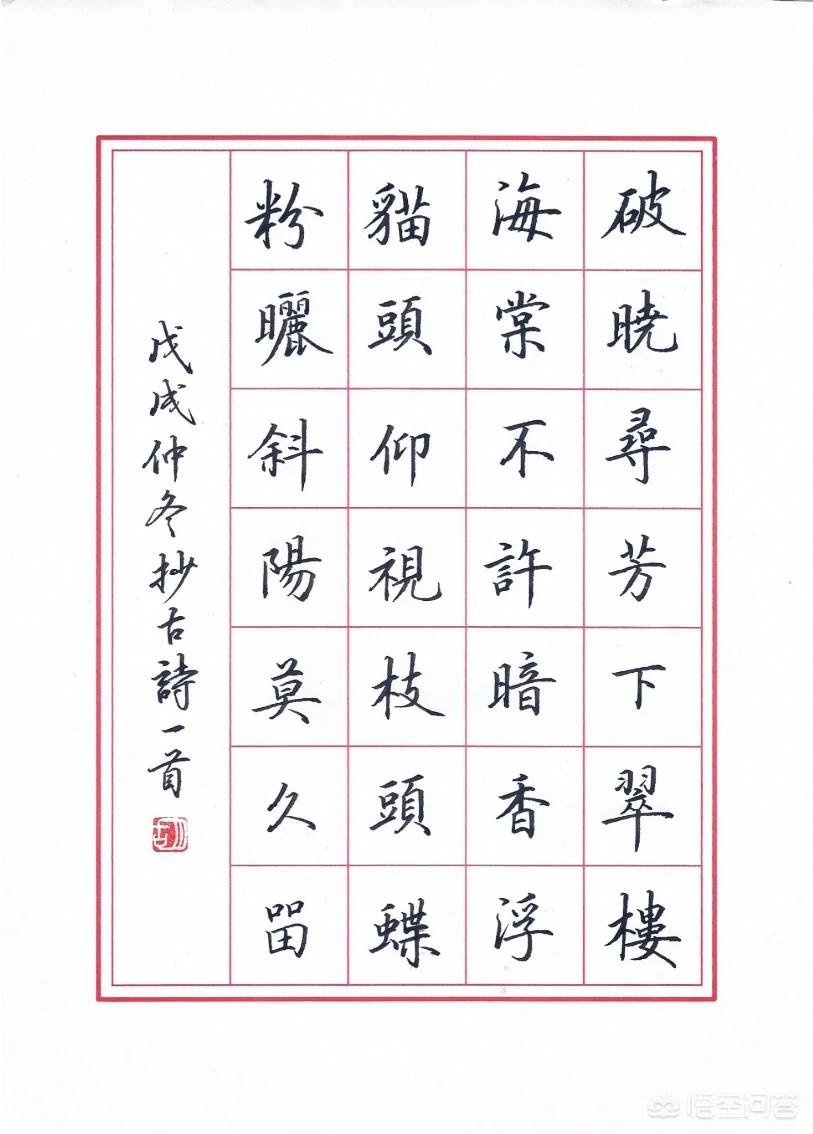 破曉尋芳下翠樓
海棠不許暗香浮
貓頭仰視枝頭蝶
粉曬斜陽莫久留
戊戌仲冬抄古詩一首
悟空问答